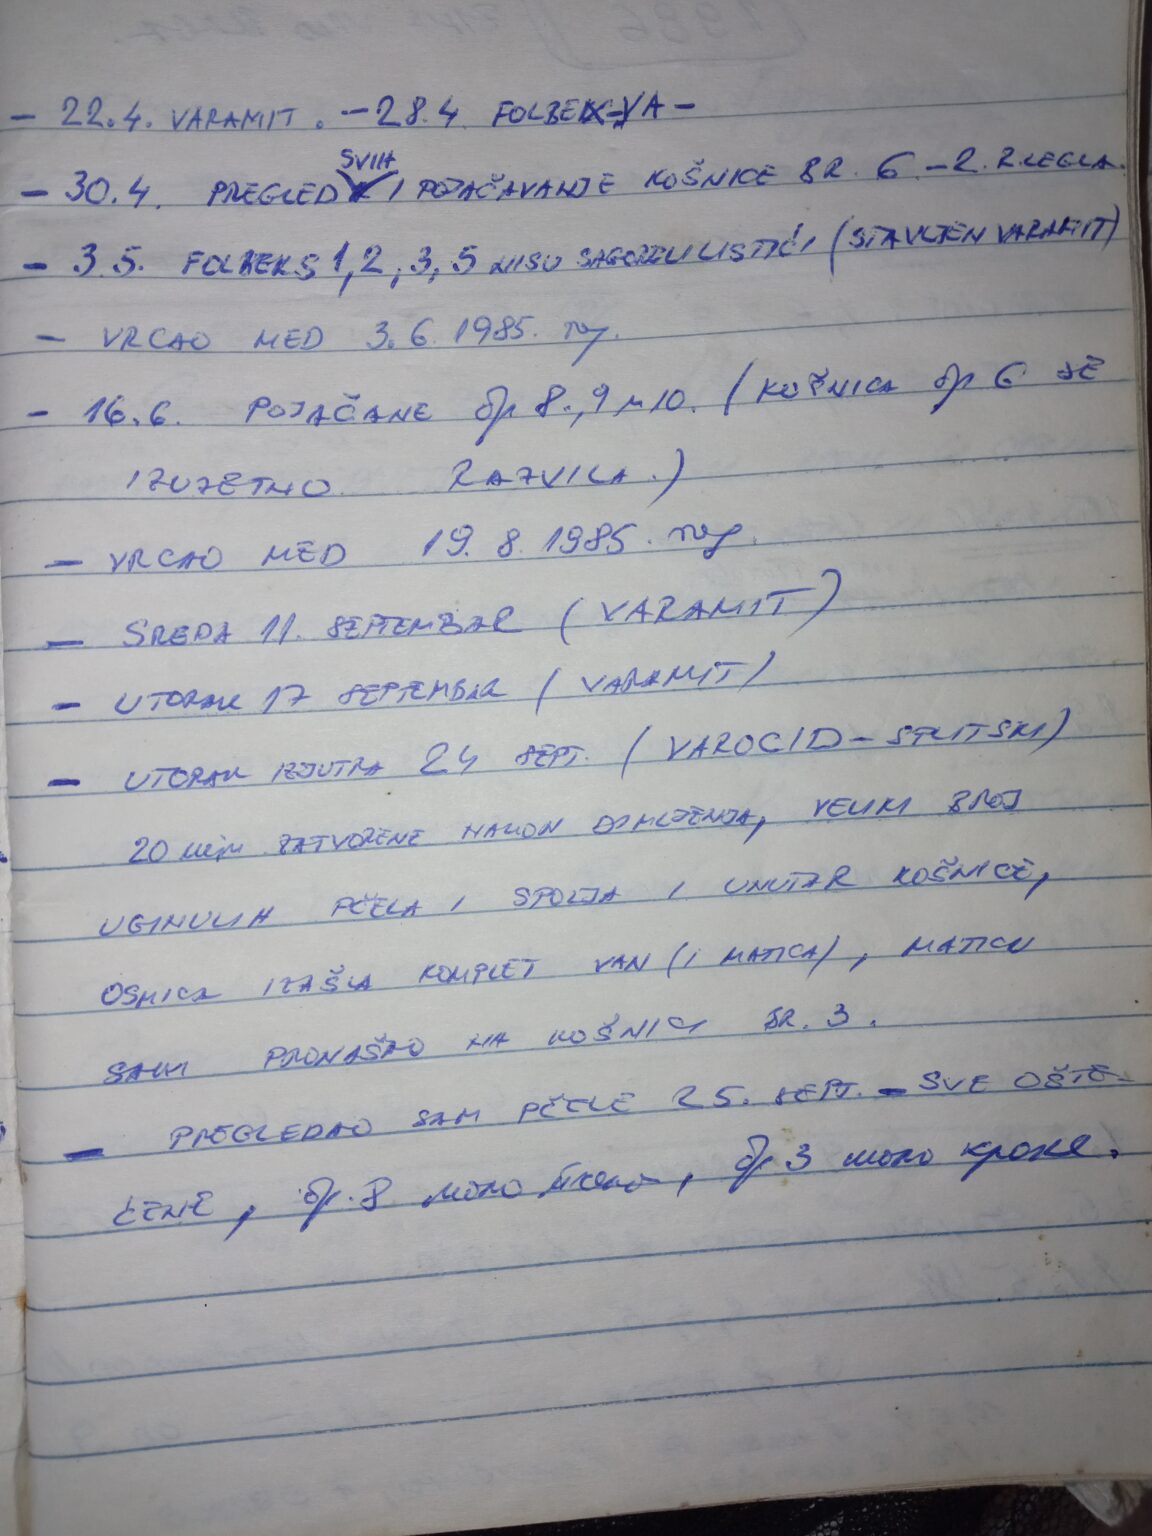 - 22.4. VARAMIT. - 28.4 FOLBEX-VA -
- 30.4. PREGLED SVIH I POJAČAVANJE KOŠNICE BR. 6 - 2. R. LEGLA.
- 3.5. FOLBEKS 1, 2, 3, 5 NISU SAGORELI LISTIĆI (STAVLJEN VARAMIT)
- VRCAO MED 3.6 1985.
- 16.6. POJAČANE бр 8., 9 и 10. (KOŠNICA бр 6 SE
IZUZETNO RAZVILA.)
- VRCAO MED 19.8.1985.
- SREDA 11. SEPTEMBAR (VARAMIT)
- UTORAK 17 SEPTEMBAR (VARAMIT)
- UTORAK IZJUTRA 24 SEPT. (VAROCID - SPLITSKI)
20 мин ZATVORENE NAKON DIMLJENJA, VELIKI BROJ
UGINULIH PČELA I SPOLJA I UNUTAR KOŠNICE,
OSMICA IZAŠLA KOMPLET VAN (I MATICA), MATICU
SAM PRONAŠAO NA KOŠNICI BR. 3.
- PREGLEDAO SAM PČELE 25. SEPT. - SVE OŠTE-
ĆENE, бр. 8 много, бр 3 мало кроке.